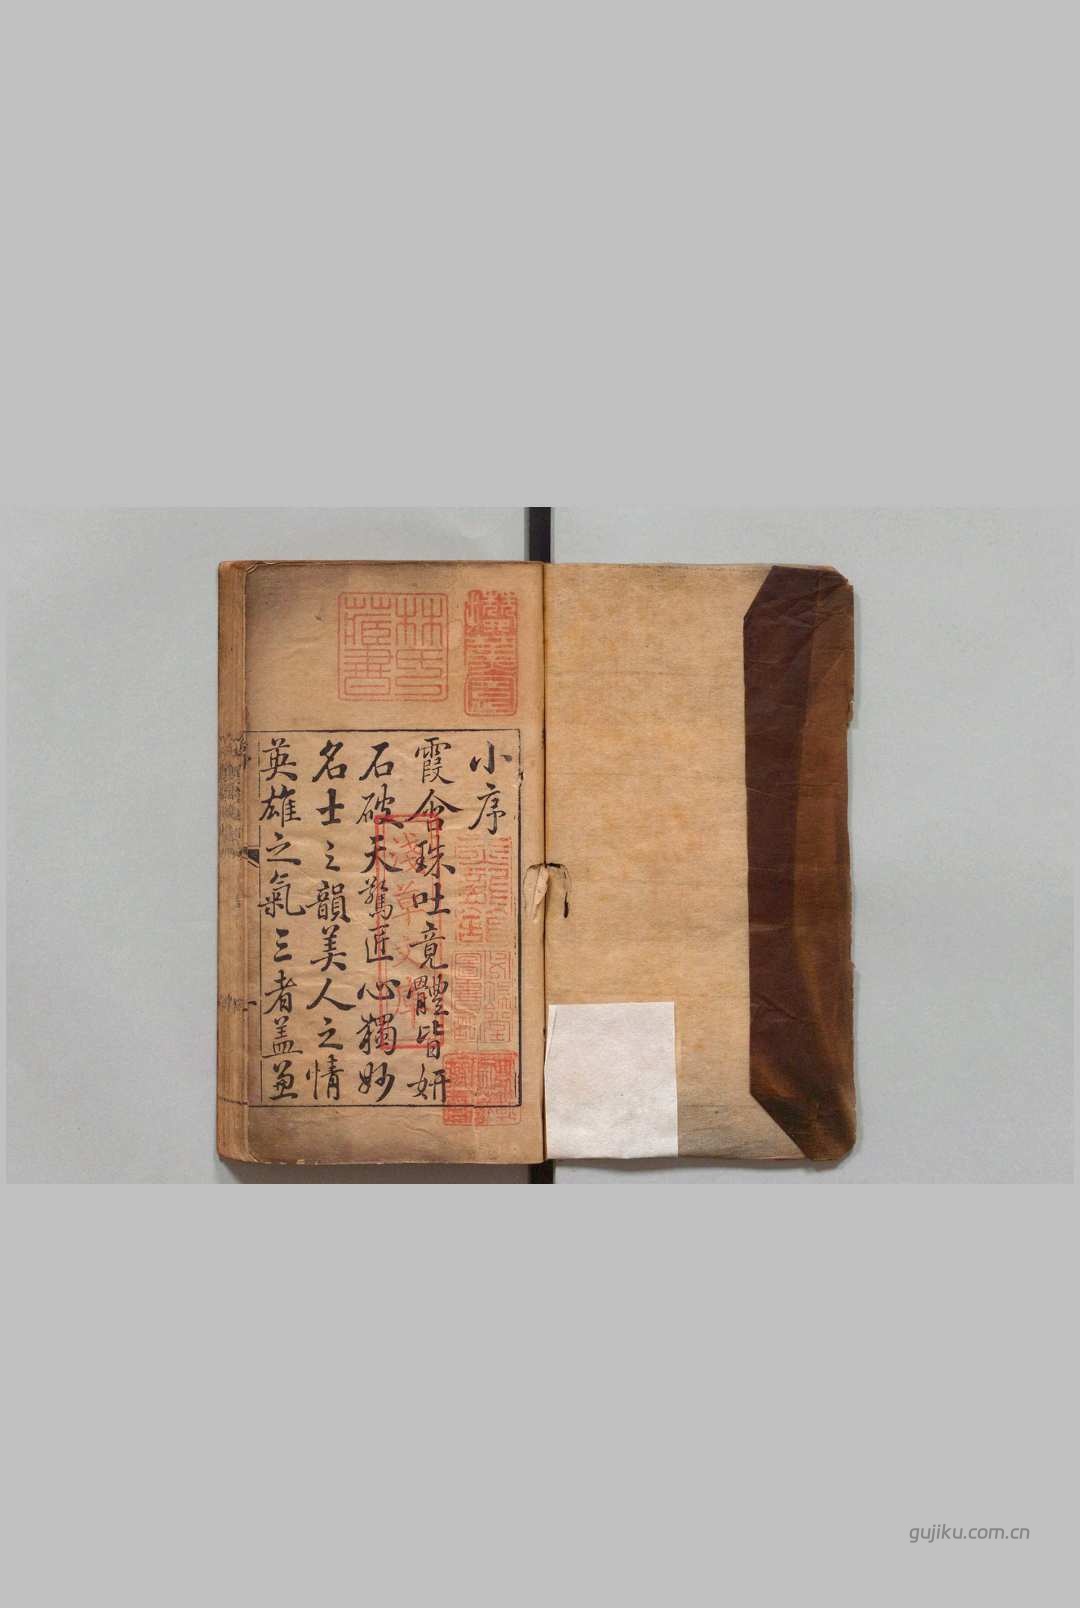 小序
霞舍珠吐竟體皆妍
石破天驚匠心獨妙
名士之韻美人之情
英雄之氣三者蓋兼
林氏藏書
淺草文庫
gujiku.com.cn